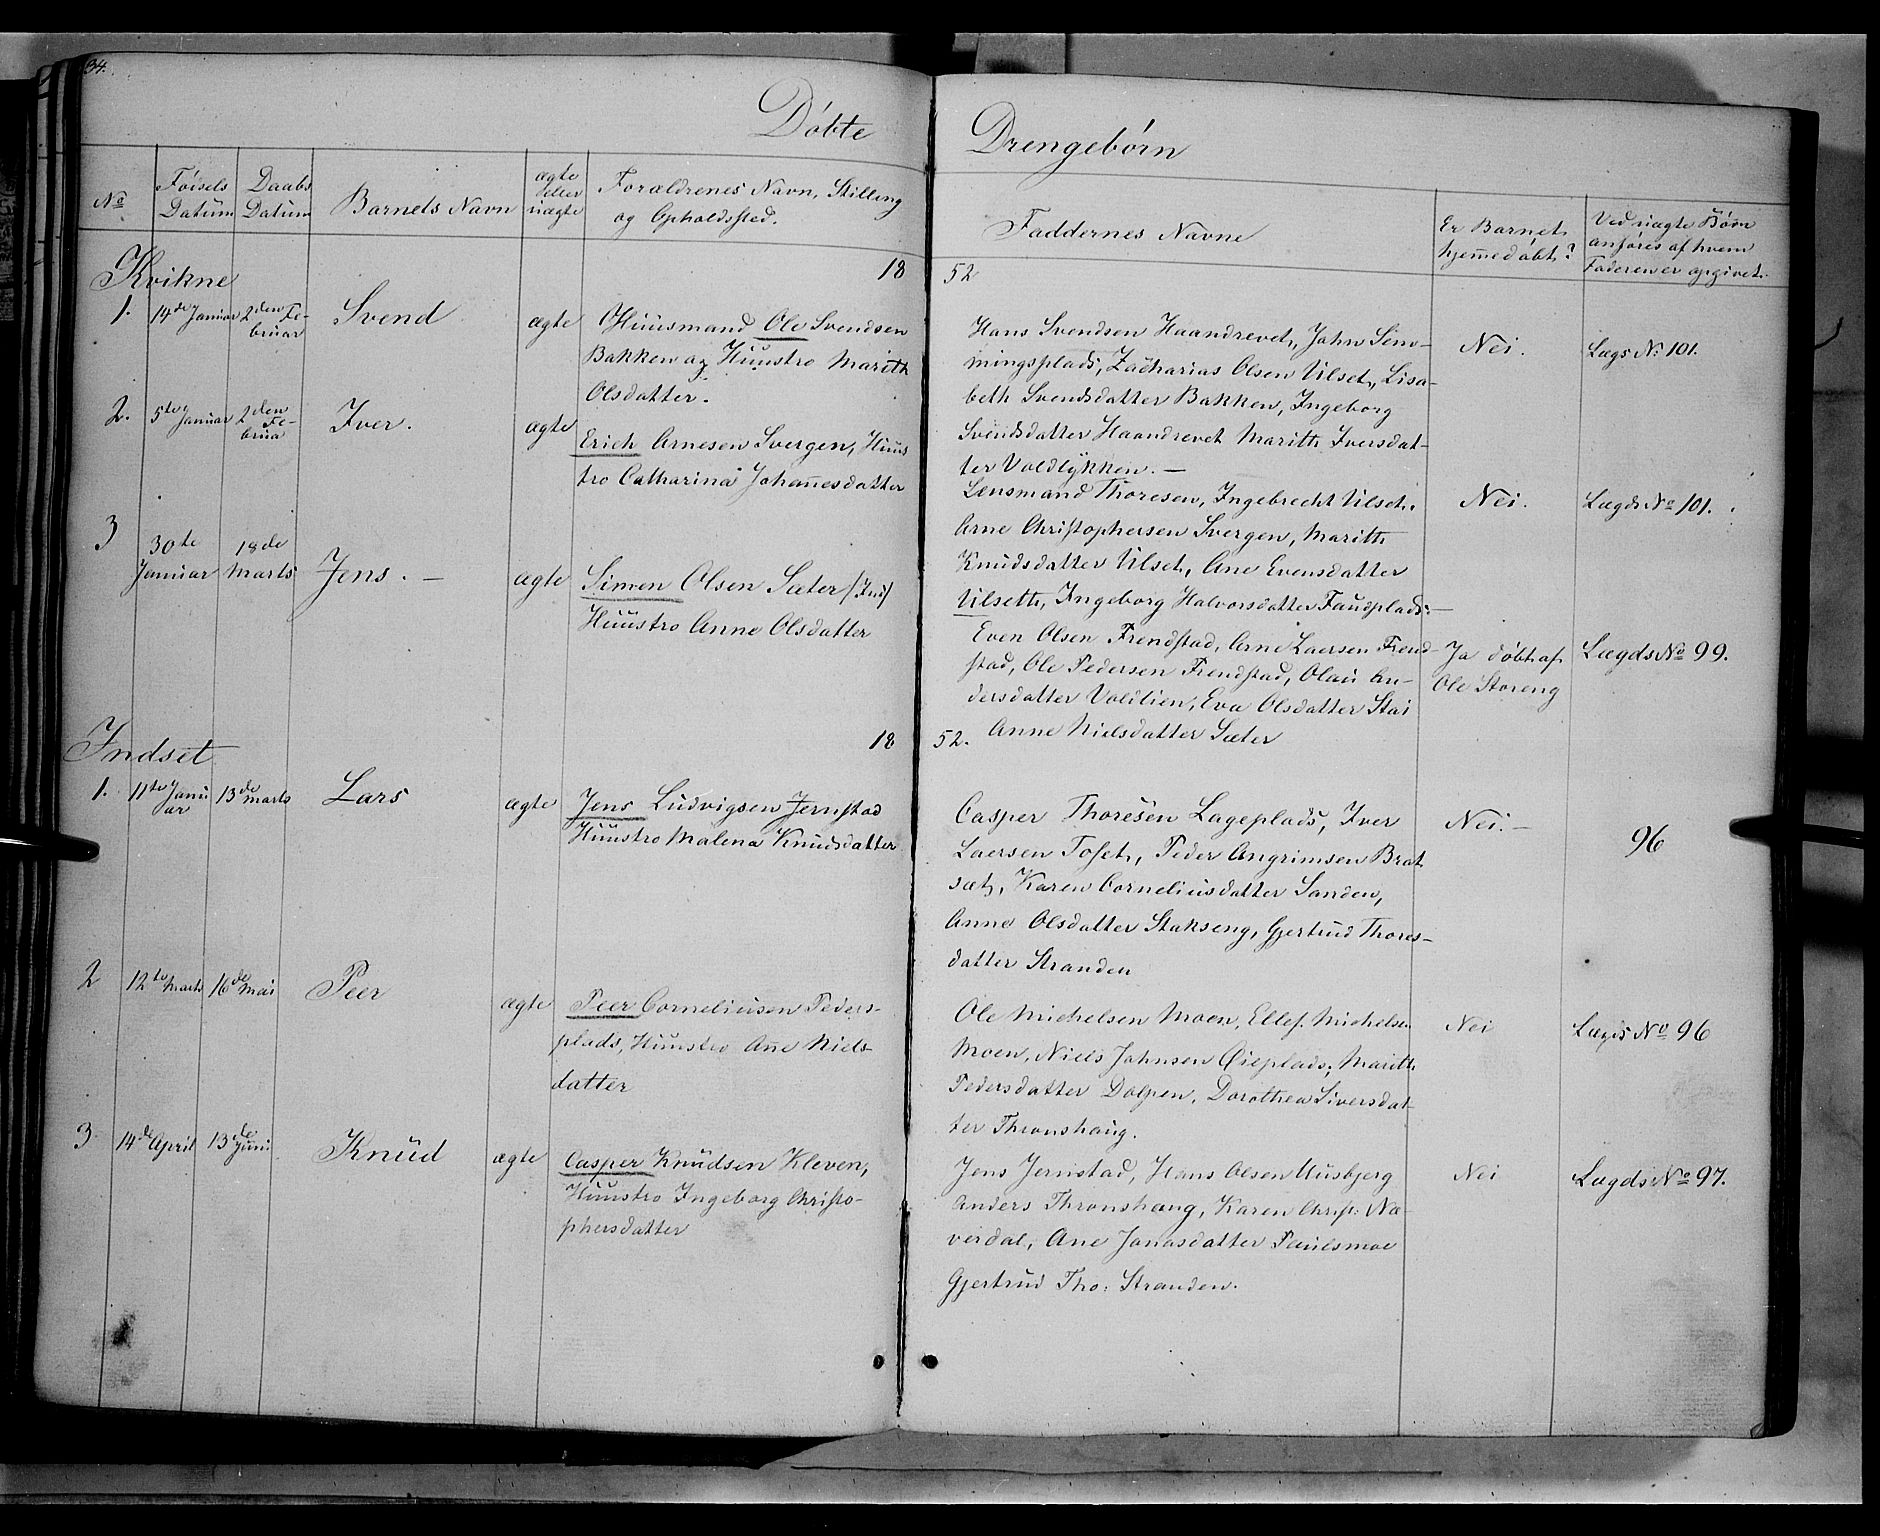 34.
Döbte Drengebörn
No
Föisels Datum
Daabs Datum
Barnets Navn
ægte eller uægte
Forældrenes Navn, Stilling
og Opholdssted.
Faddernes Navne
Er Barnet
hjemmedöbt?
Ved uægte Börn
anföres af hvem
Faderen er opgivet.
Kvikne 18 52
1. 14de Januar 2den Februar Svend ægte
Huusmand Ole Svendsen
Bakken og Huustro Marith
Olsdatter.
Hans Svendsen Haandrevet, John
mingsplads, Zacharias Olsen Vilset, Lisa-
beth Svendsdatter Bakken, Ingeborg
Svendsdatter Haandrevet Marith Iversdat-
ter Voldlykken. —
Nei.
Lægs No 101.
2. 5te Januar 2den Februa Iver. ægte
Erich Arnesen Svergen, Huus
tro Catharina Johannesdatter
Lensmand Thoresen, Ingebrecht Vilset,
Arne Christophersen Svergen, Marith
Knudsdatter Vilset, Ane Evensdatter
Vilseth, Ingeborg Halvorsdatter Faudplads —
Nei.
Lægds No 101.
3 30te Januar 18de Marts Jens. — ægte
Simen Olsen Sæter
Huustro Anne Olsdatter
Even Olsen Frendstad, Arne Laersen Frend-
stad, Ole Pedersen Frendstad, Olau An-
dersdatter Voldlien, Eva Olsdatter Stai
Anne Nielsdatter Sæter
Ja döbt af
Ole Storeng
Lægds No 99.
Indset 18 52.
1. 11te Januar 13de Marts Lars ægte
Jens Ludvigsen Jernstad
Huustro Malena Knudsdatter
Casper Thoresen Lageplads, Iver
Laersen Toset, Peder Angrimsen Brat
sæt, Karen Corneliusdatter Sanden,
Anne Olsdatter Stakseng, Gjertrud Thores-
datter Stranden
Nei. —
96
2 12te Marts 16de Mai Peer ægte
Peer Corneliusen Peders-
plads, Huustro Ane Niels
datter
Ole Michelsen Moen, Ellef Michelsen
Moen, Niels Johnsen Öieplads, Marith
Pedersdatter Dolpen, Dorothea Siversdat-
ter Thronshaug.
Nei
Lægds No 96
3 14de April 13de Juni Knud ægte
Casper Knudsen Kleven,
Huustro Ingeborg Christo-
phersdatter
Jens Jernstad, Hans Olsen Uusbjerg
Anders Thronshaug, Karen Christ: Næ-
verdal, Ane Jonasdatter Paulsmoe
Gjertrud Tho: Stranden.
Nei
Lægds No 97.